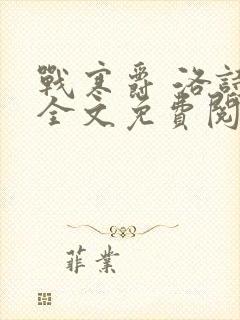 戰寒爵 洛詩
全文免費閱
菲業